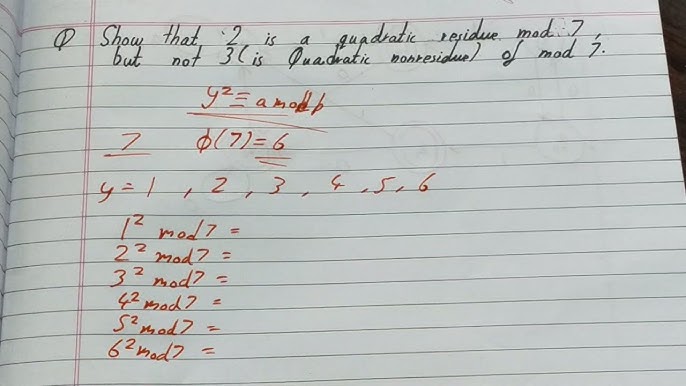 Q Show that 2 is a quadratic residue mod 7,
but not 3 (is Quadratic nonresidue) of mod 7.
y² ≡ a mod p
7 ϕ(7) = 6
y = 1 , 2 , 3 , 4 , 5 , 6
1² mod 7 =
2² mod 7 =
3² mod 7 =
4² mod 7 =
5² mod 7 =
6² mod 7 =